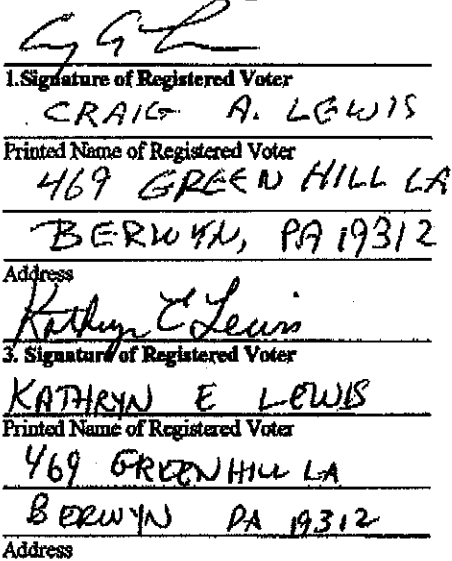 1.Signature of Registered Voter
CRAIG A. LEWIS
Printed Name of Registered Voter
469 GREEN HILL LA
BERWYN, PA 19312
Address
Kathryn E Lewis
3. Signature of Registered Voter
KATHRYN E LEWIS
Printed Name of Registered Voter
469 GREENHILL LA
BERWYN PA 19312
Address